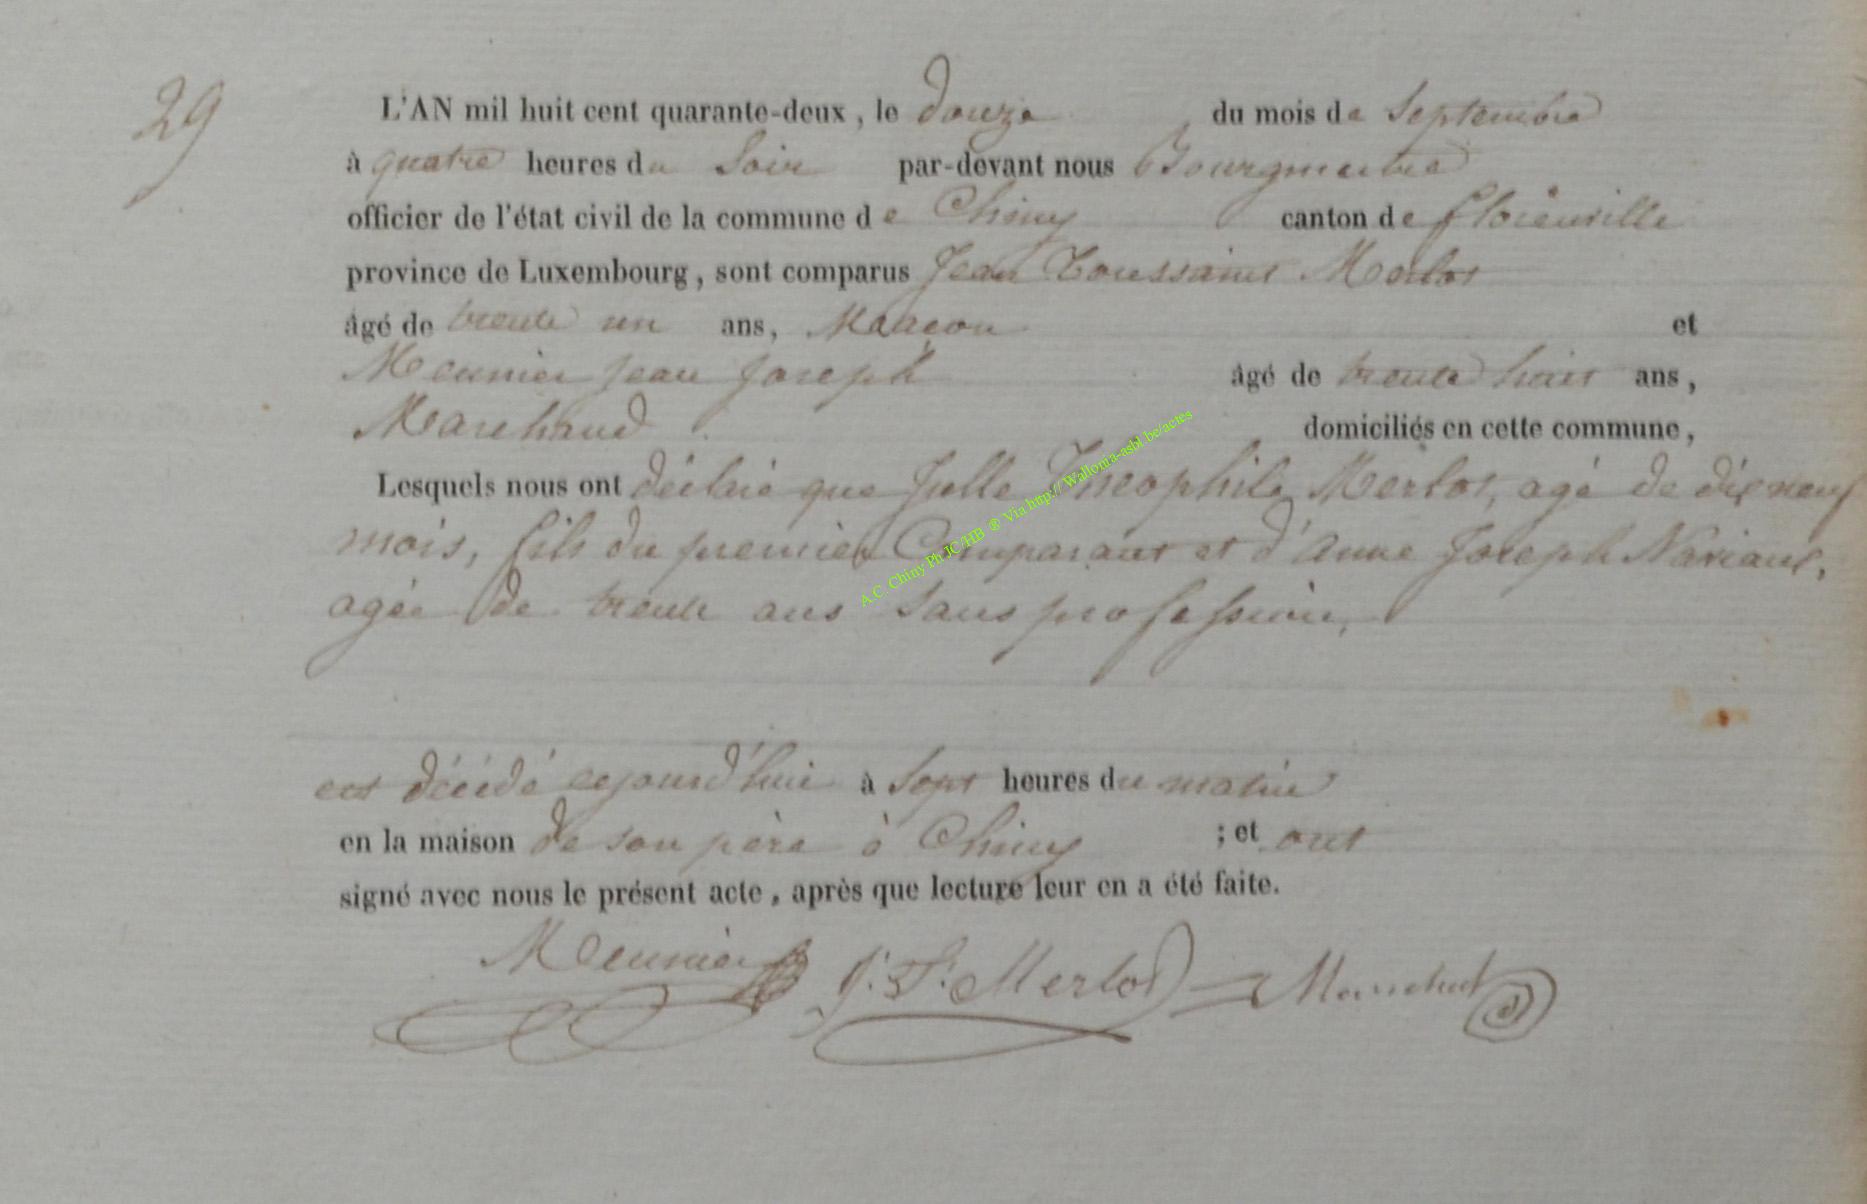 29
L'AN mil huit cent quarante-deux, le douze du mois de Septembre
à quatre heures du Soir par-devant nous Bourgmestre
officier de l'état civil de la commune de Chiny canton de florenville
province de Luxembourg, sont comparus Jean Toussaint Merlot
âgé de trente un ans, Maaçon et
Meunier Jean Joseph âgé de trente huit ans,
Marchand domiciliés en cette commune,
Lesquels nous ont déclaré que Julle Théophile Merlot, agé de dix neuf
mois, fils du premier Comparant et d'Anne Joseph
agée de trente ans Sans profession,
est décédé cejourd'hui à Sept heures du matin
en la maison de son père à Chiny ; et ont
signé avec nous le présent acte, après que lecture leur en a été faite.
Meunier J. T. Merlot
A.C. Chiny Ph JC/HB ® Via http:// Wallonia-asbl.be/actes